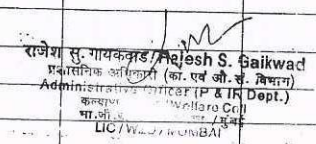 राजेश सु. गायकवाड/Rajesh S. Gaikwad
प्रशासनिक अधिकारी (का. एवं औ.सं. विभाग)
Administrative Officer (P & IR Dept.)
कल्याण Welfare Cell
भा.जी. मुंबई
LIC / MUMBAI